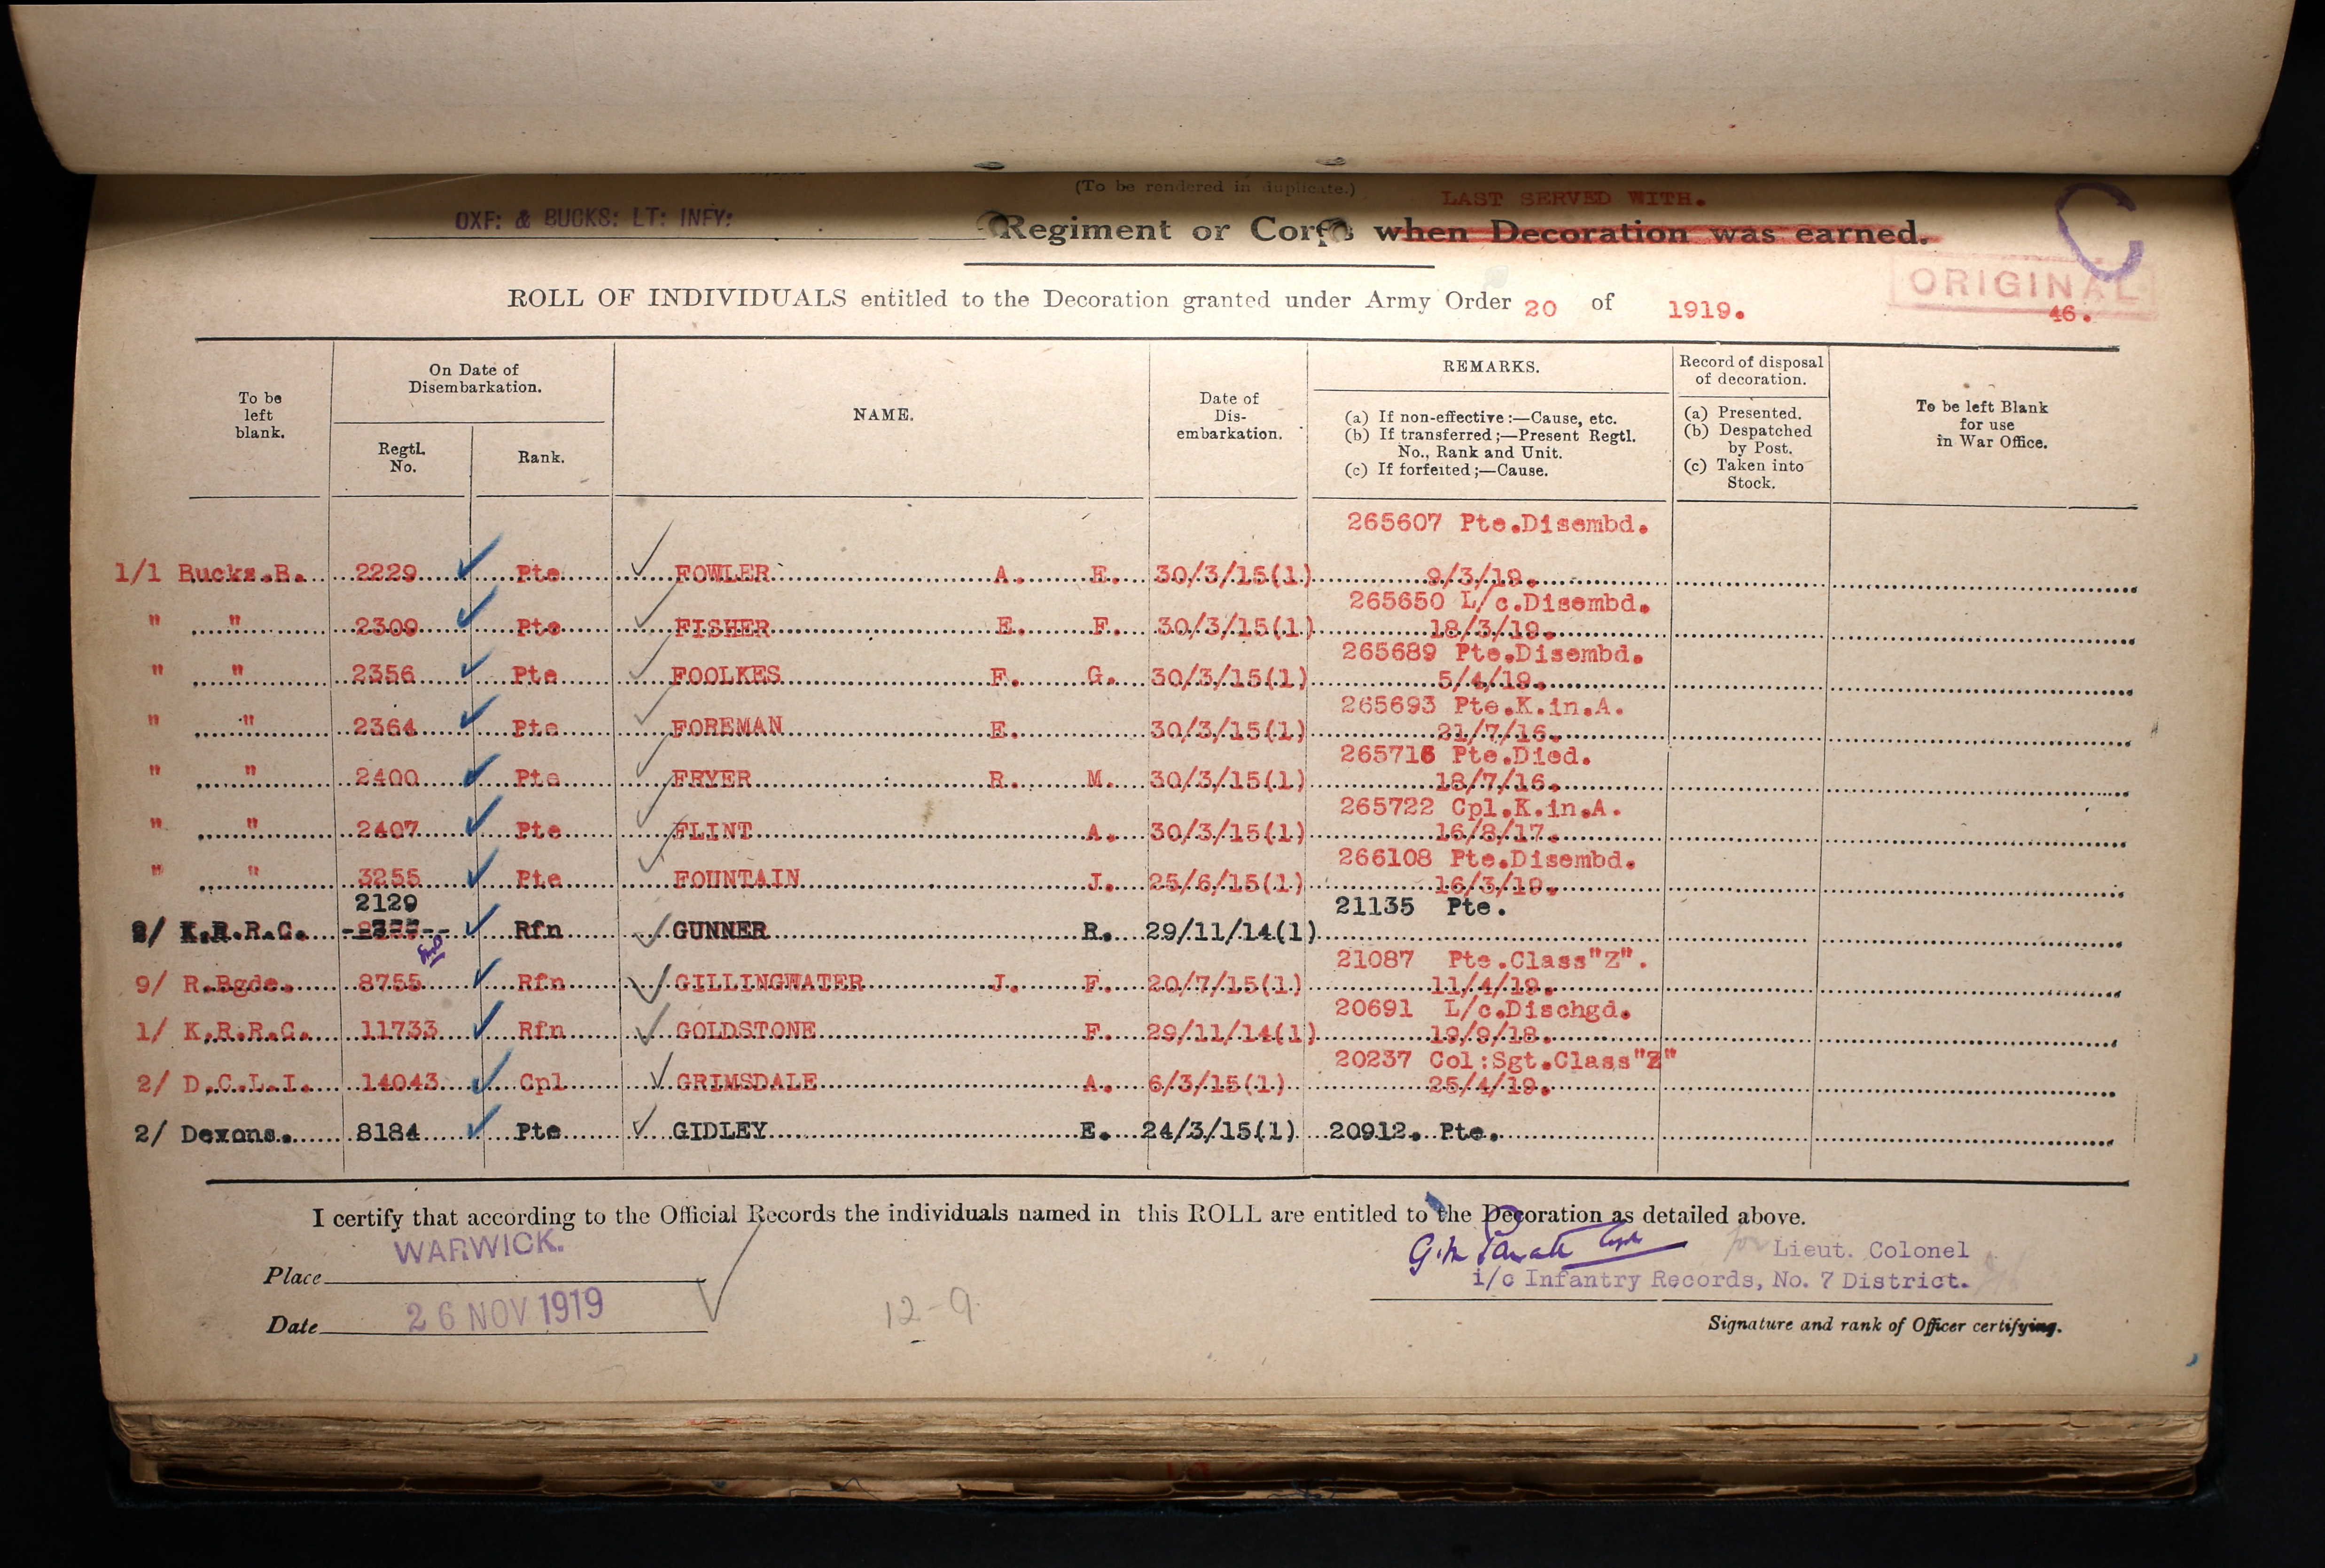 (To be rendered in duplicate.)
LAST SERVED WITH.
OXF: & BUCKS: LT: INFY: Regiment or Corps when Decoration was earned.
C
ORIGINAL
ROLL OF INDIVIDUALS entitled to the Decoration granted under Army Order 20 of 1919. 46.
To be left blank.
On Date of Disembarkation.
Regtl. No.
Rank.
NAME.
Date of Dis-embarkation.
REMARKS.
(a) If non-effective:—Cause, etc.
(b) If transferred;—Present Regtl. No., Rank and Unit.
(c) If forfeited;—Cause.
Record of disposal of decoration.
(a) Presented.
(b) Despatched by Post.
(c) Taken into Stock.
To be left Blank for use in War Office.
265607 Pte.Disembd.
1/1 Bucks.B. 2229 Pte FOWLER A. E. 30/3/15(1) 9/3/19.
265650 L/c.Disembd.
" " 2309 Pte FISHER E. F. 30/3/15(1) 18/3/19.
265689 Pte.Disembd.
" " 2356 Pte FOOLKES F. G. 30/3/15(1) 5/4/19.
265693 Pte.K.in.A.
" " 2364 Pte FOREMAN E. 30/3/15(1) 21/7/16.
265716 Pte.Died.
" " 2400 Pte FRYER R. M. 30/3/15(1) 18/7/16.
265722 Cpl.K.in.A.
" " 2407 Pte FLINT A. 30/3/15(1) 16/8/17.
266108 Pte.Disembd.
" " 3255 Pte FOUNTAIN J. 25/6/15(1) 16/3/19.
2129 21135 Pte.
K.R.R.C. Rfn GUNNER R. 29/11/14(1)
21087 Pte.Class"Z".
9/ R.Bgde. 8755 Rfn GILLINGWATER J. F. 20/7/15(1) 11/4/19.
20691 L/c.Dischgd.
1/ K.R.R.C. 11733 Rfn GOLDSTONE F. 29/11/14(1) 19/9/18.
20237 Col:Sgt.Class"Z"
2/ D.C.L.I. 14043 Cpl GRIMSDALE A. 6/3/15(1) 25/4/19.
2/ Devons. 8184 Pte GIDLEY E. 24/3/15(1) 20912. Pte.
I certify that according to the Official Records the individuals named in this ROLL are entitled to the Decoration as detailed above.
WARWICK.
Place
for Lieut. Colonel
i/c Infantry Records, No. 7 District.
Date 26 NOV 1919
12-9.
Signature and rank of Officer certifying.